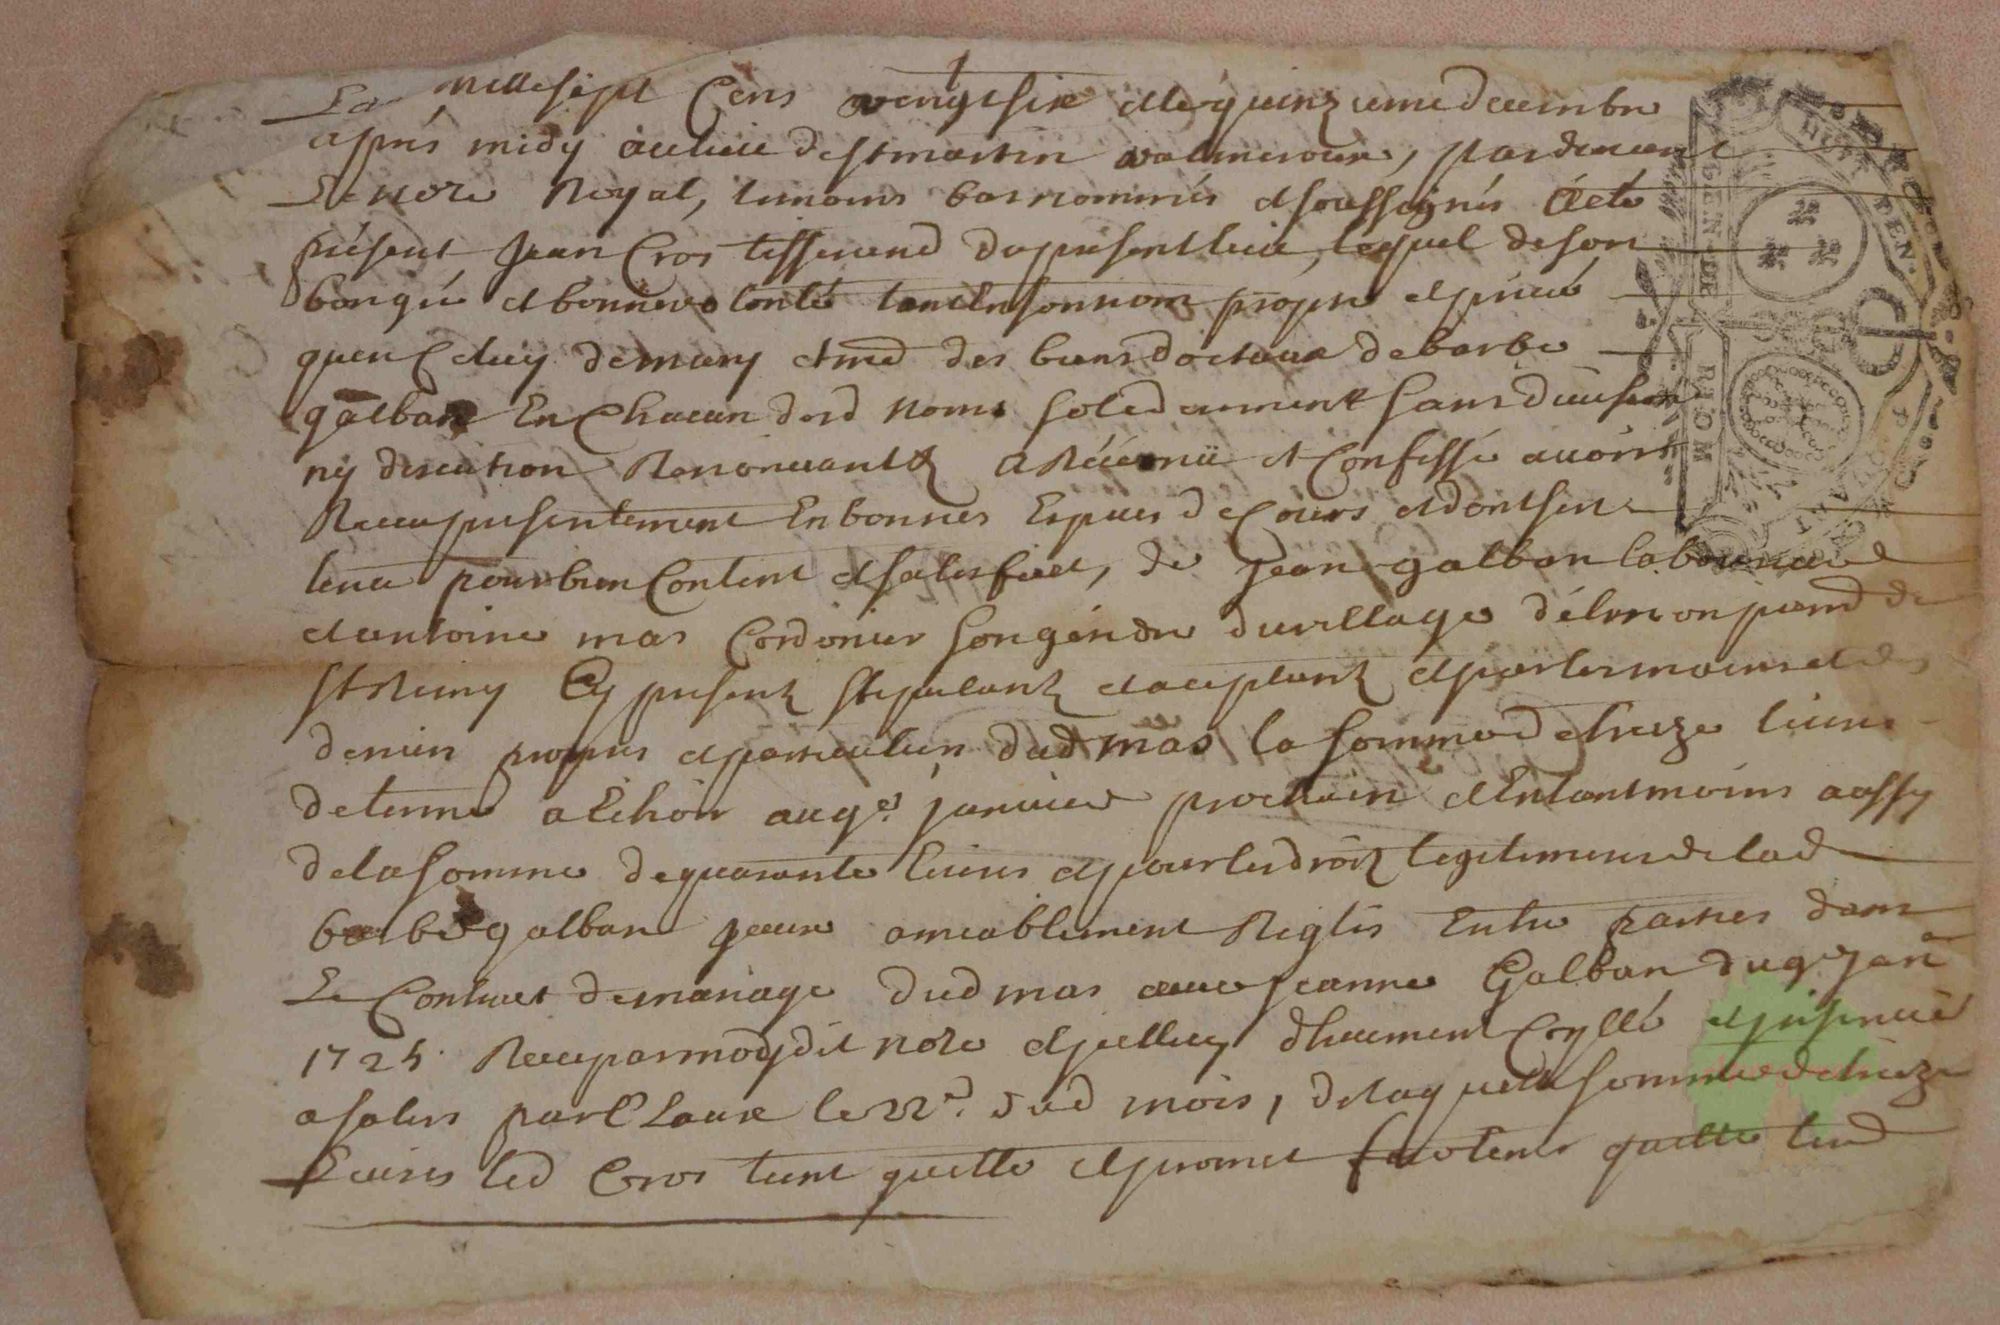 Lan mille sept Cens vengt six et le quinzieme decembre
apres midy au lieu de st martin valmeroux, pardevant
Le nore Royal, temoins bas nommés et soussignés A eté
présent Jean Cros tisserand du present lieu, lequel de son
bon gré et bonne volonté tant en son nom propre et privé
quen Celuy de mary et me des biens dotaux de barbe
galban En Chacun desd noms soledairement sans division
ny discution Renonceant a Réconnü et Confessé avoir
Receu presentement En bonnes Especes de Cours et dont sest
tenu pour bien Content et satisfait, de Jean galban laboureur
et antoine mas Cordonier son géndre du village
st Remy Cy present stipulant et aceptant et par les mains et des
deniers propres et particuliers dud mas la somme de treize livres
de terme a Echoir au 9e janvier prochain et En tant moins aussy
de la somme de quarante livres et pour les droit legitimaires de lad
barbe galban Jceux amiablement Reglés Entre parties dans
Le Contract de mariage dud mas avec Jeanne Galban du 9e Janr
1725 Receu par moydit nore et jcelluy dhuement Crollé et jnsinué
a salers par Claux le 22e dud mois, de laquelle somme de treize
Livres led Cros tient quitte et promet faire tenir quitte led
GEN. DE RIOM